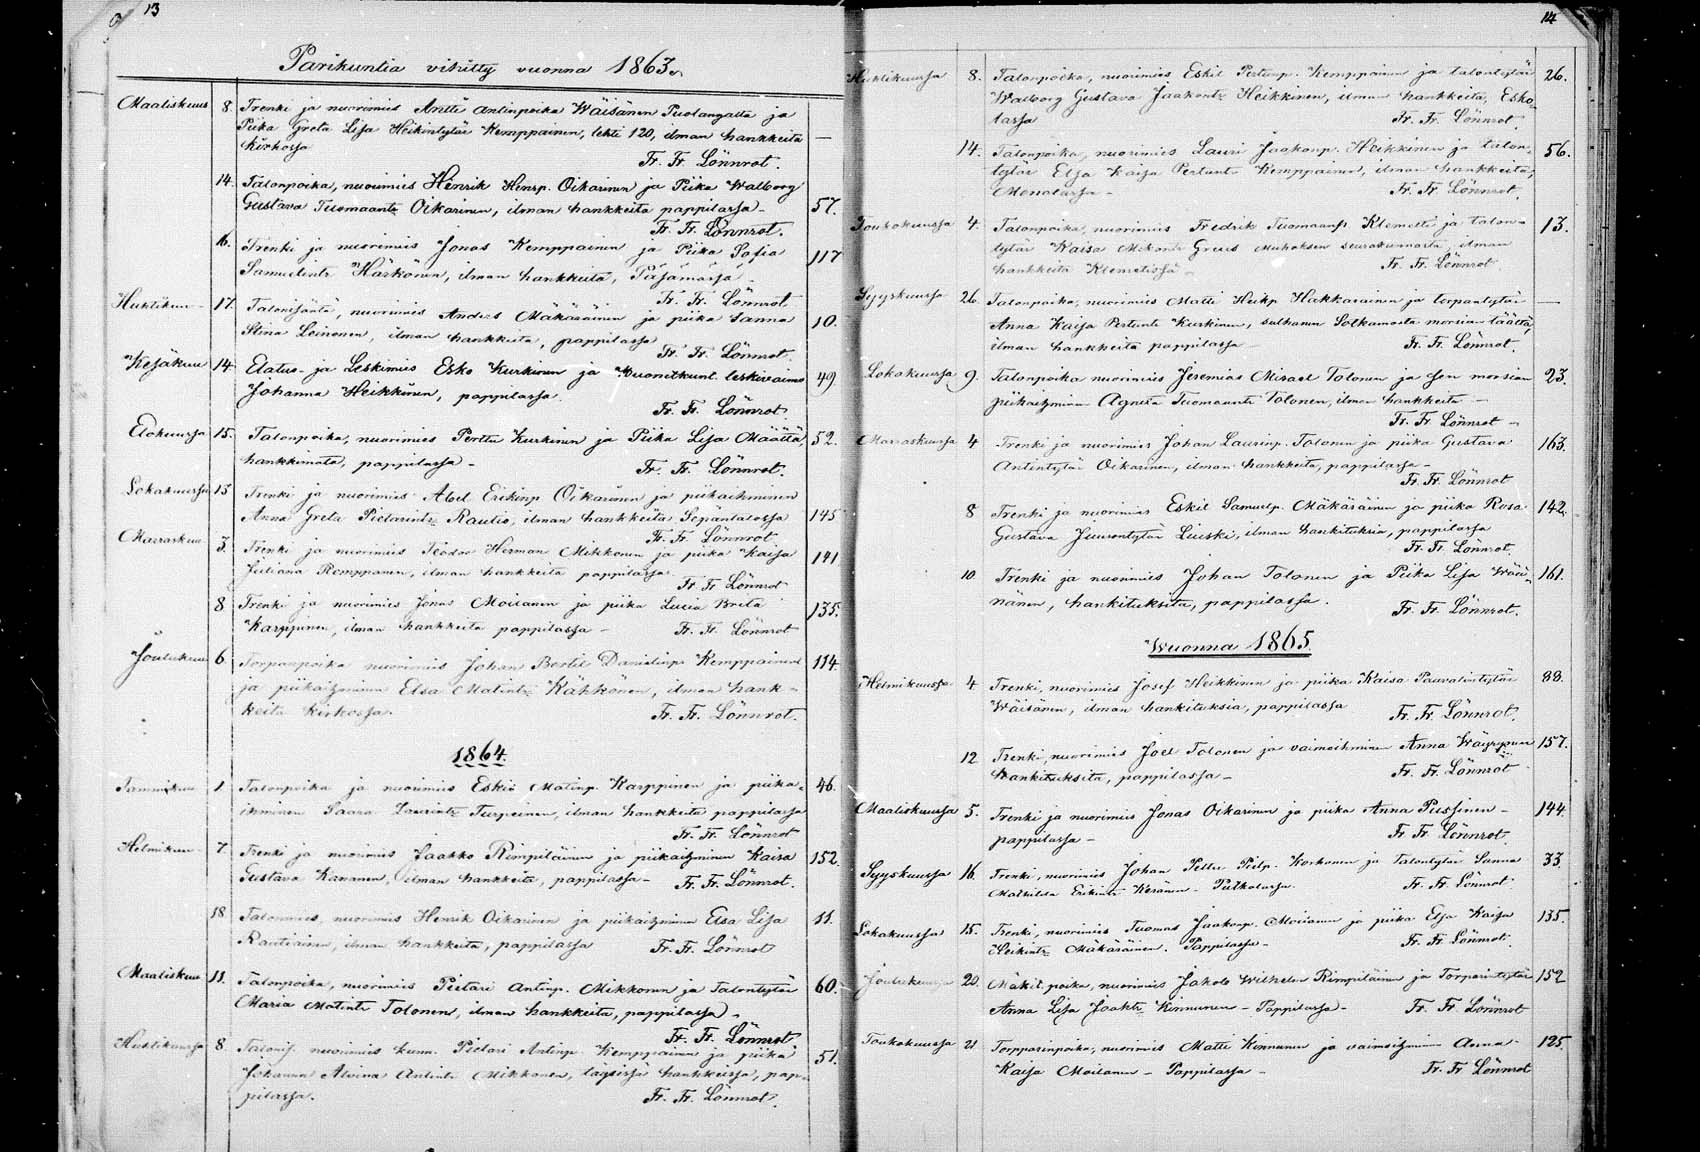 13
Parikuntia vihitty vuonna 1863.
Maaliskuus 8. Trenki ja nuorimies Antti Antinpoika Wäisänen Puolangalta ja
Piika Greta Lisa Heikintytär Kemppainen, lehti 120, ilman hankkeita —
kirkossa Fr. Fr. Lönnrot.
14. Talonpoika, nuorimies Henrik Henrp. Oikarinen ja Piika Walborg
Gustava Tuomaantr Oikarinen, ilman hankkeita pappilassa 57.
Fr. Fr. Lönnrot.
16. Trenki ja nuorimies Jonas Kemppainen ja Piika Sofia 117
Samuelintr Härkönen, ilman hankkeita,
Fr. Fr. Lönnrot
Huhtikuu 17. Talonisäntä, nuorimies Anders Mäkäräinen ja piika Sanna 10.
Stina Leinonen, ilman hankkeita, pappilassa
Fr. Fr. Lönnrot.
Kesäkuu 14. Elatus- ja Leskimies Esko Kurkinen ja Huonetkunt. leskivaimo 49
Johanna Heikkinen, pappilassa.
Fr. Fr. Lönnrot.
Elokuussa 15. Talonpoika, nuorimies Perttu Kurkinen ja Piika Lisa Määttä, 52.
hankkimata, pappilassa — Fr. Fr. Lönnrot.
Lokakuussa 13 Trenki ja nuorimies Abel Erikinp Oikarinen ja piikaihminen
Anna Greta Pietarintr Rautio, ilman hankkeita Sepäntalossa 145
Fr. Fr. Lönnrot
Marraskuu 3. Trenki ja nuorimies Teodor Herman Mikkonen ja piika Kaisa 141
Juliana Remppanen, ilman hankkeita pappilassa
Fr. Fr Lönnrot
8 Trenki ja nuorimies Jonas Moilanen ja piika Lucia Brita 135.
Karppinen, ilman hankkeita pappilassa — Fr. Fr. Lönnrot
Joulukuu 6. Torpanpoika nuorimies Johan Bertil Danielinp Kemppainen 114.
ja piikaihminen Elsa Matintr Kähkönen, ilman hank-
keita kirkossa. Fr. Fr. Lönnrot.
1864.
Tammikuu 1. Talonpoika ja nuorimies Eskil Matinp. Karppinen ja piika- 46.
ihminen Saara Laurintr Turpeinen, ilman hankkeita pappilassa
Fr. Fr. Lönnrot
Helmikuu 7. Trenki ja nuorimies Jaakko Rimpiläinen ja piikaihminen Kaisa 152.
Gustava Kananen, ilman hankkeita, pappilassa — Fr. Fr. Lönnrot.
18. Talonmies, nuorimies Henrik Oikarinen ja piikaihminen Elsa Lisa 11.
Rautiainen, ilman hankkeita, pappilassa Fr. Fr. Lönnrot
Maaliskuu 11. Talonpoika, nuorimies Pietari Antinp. Mikkonen ja Talontytär 60.
Maria Matintr Tolonen, ilman hankkeita, pappilassa —
Fr. Fr. Lönnrot
Huhtikuussa 8. nuorimies Pietari Antinp Kemppainen ja piika 51.
Johanna Alvina Antintr Mikkonen, hankkeissa, pap-
pilassa. Fr. Fr. Lönnrot.
14
Huhtikuussa 8. Talonpoika, nuorimies Eskil Pertunp. Kemppainen ja talontytär 26.
Walborg Gustava Jaakontr Heikkinen, ilman hankkeita, Esko-
lassa Fr. Fr. Lönnrot.
14. Talonpoika, nuorimies Lauri Jaakonp. Heikkinen ja talon- 56.
tytär Elsa Kaisa Pertuntr Kemppainen, ilman hankkeita,
Fr. Fr Lönnrot.
Toukokuussa 4. Talonpoika, nuorimies Fredrik Tuomaanp Klemetti ja talon- 13.
tytär Kaisa Mikontr Greus Muhoksen seurakunnasta, ilman
hankkeita Klemetissä — Fr. Fr. Lönnrot.
Syyskuussa 26. Talonpoika, nuorimies Matti Heikp Hakkarainen ja torpantytär —
Anna Kaisa Pertuntr Kurkinen, sulhanen Sotkamosta morsian täältä,
ilman hankkeita pappilassa — Fr. Fr. Lönnrot.
Lokakuussa 9. Talonpoika nuorimies Jeremias Misael Tolonen ja sen morsian 23.
piikaihminen Agneta Tuomaantr Tolonen, ilman hankkeita —
Fr. Fr Lönnrot —
Marraskuussa 4 Trenki ja nuorimies Johan Laurinp. Tolonen ja piika Gustava 163.
Antintytär Oikarinen, ilman hankkeita, pappilassa —
Fr. Fr. Lönnrot
8 Trenki ja nuorimies Eskil Samuelp. Mäkäräinen ja piika Rosa 142.
Gustava Juhontytär Luoski, ilman hankituksia, pappilassa
Fr. Fr. Lönnrot.
10. Trenki ja nuorimies Johan Tolonen ja Piika Lisa Wäi- 161.
nänen, hankituksita, pappilassa. Fr. Fr. Lönnrot.
Wuonna 1865
Helmikuussa 4 Trenki, nuorimies Josef Heikkinen ja piika Kaisa Paavalintytär 88.
Wäisänen, ilman hankituksia, pappilassa Fr. Fr. Lönnrot.
12 Trenki, nuorimies Joel Tolonen ja vaimoihminen Anna Wäyrynen 157.
hankituksita, pappilassa — Fr. Fr. Lönnrot
Maaliskuussa 5. Trenki ja nuorimies Jonas Oikarinen ja piika Anna Pussinen — 144.
pappilassa — Fr. Fr. Lönnrot.
Syyskuussa 16. Trenki, nuorimies Johan Petter Korhonen ja Talontytär Sanna 33
Mathilda Erikintr Keränen — Fr. Fr. Lönnrot
Lokakuussa 15. Trenki, nuorimies Tuomas Jaakonp. Moilanen ja piika Elsa Kaisa 135.
Heikintr Mäkäräinen. Pappilassa — Fr. Fr. Lönnrot.
Joulukuussa 20. Mäkit. poika, nuorimies Jakob Wilhelm Rimpiläinen ja Torparintytär 152
Anna Lisa Jaaktr Kinnunen — Pappilassa — Fr. Fr. Lönnrot
Toukokuussa 21 Torpparinpoika, nuorimies Matti Kinnunen ja vaimoihminen Anna 125.
Kaisa Moilanen — Pappilassa — Fr. Fr Lönnrot